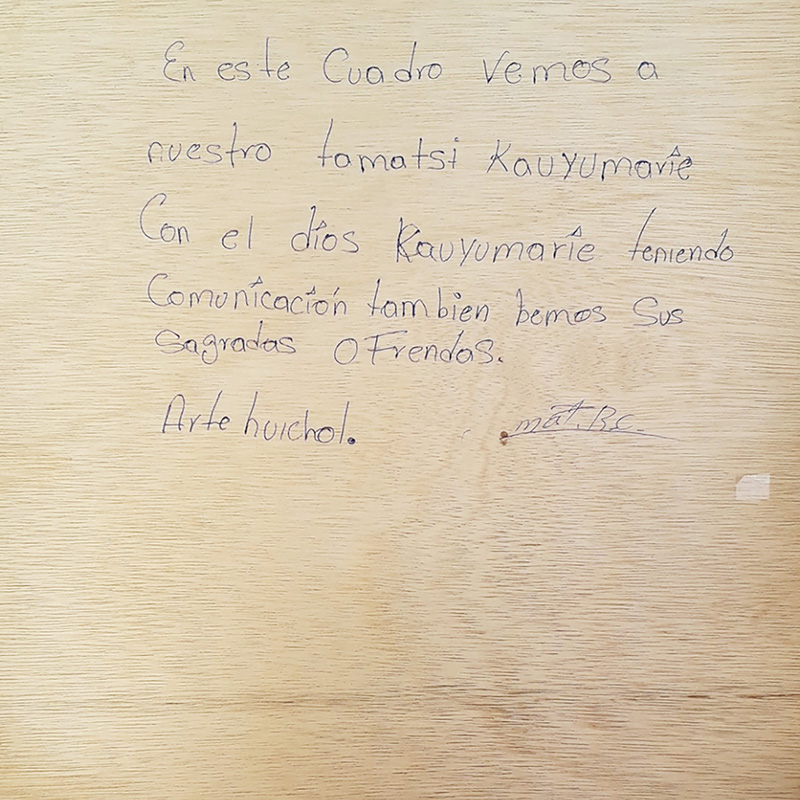 En este Cuadro vemos a
nuestro tamatsi Kauyumarie
Con el dios Kauyumarie teniendo
Comunicación tambien bemos Sus
sagradas OFrendas.
Arte huichol. mat. B.C.